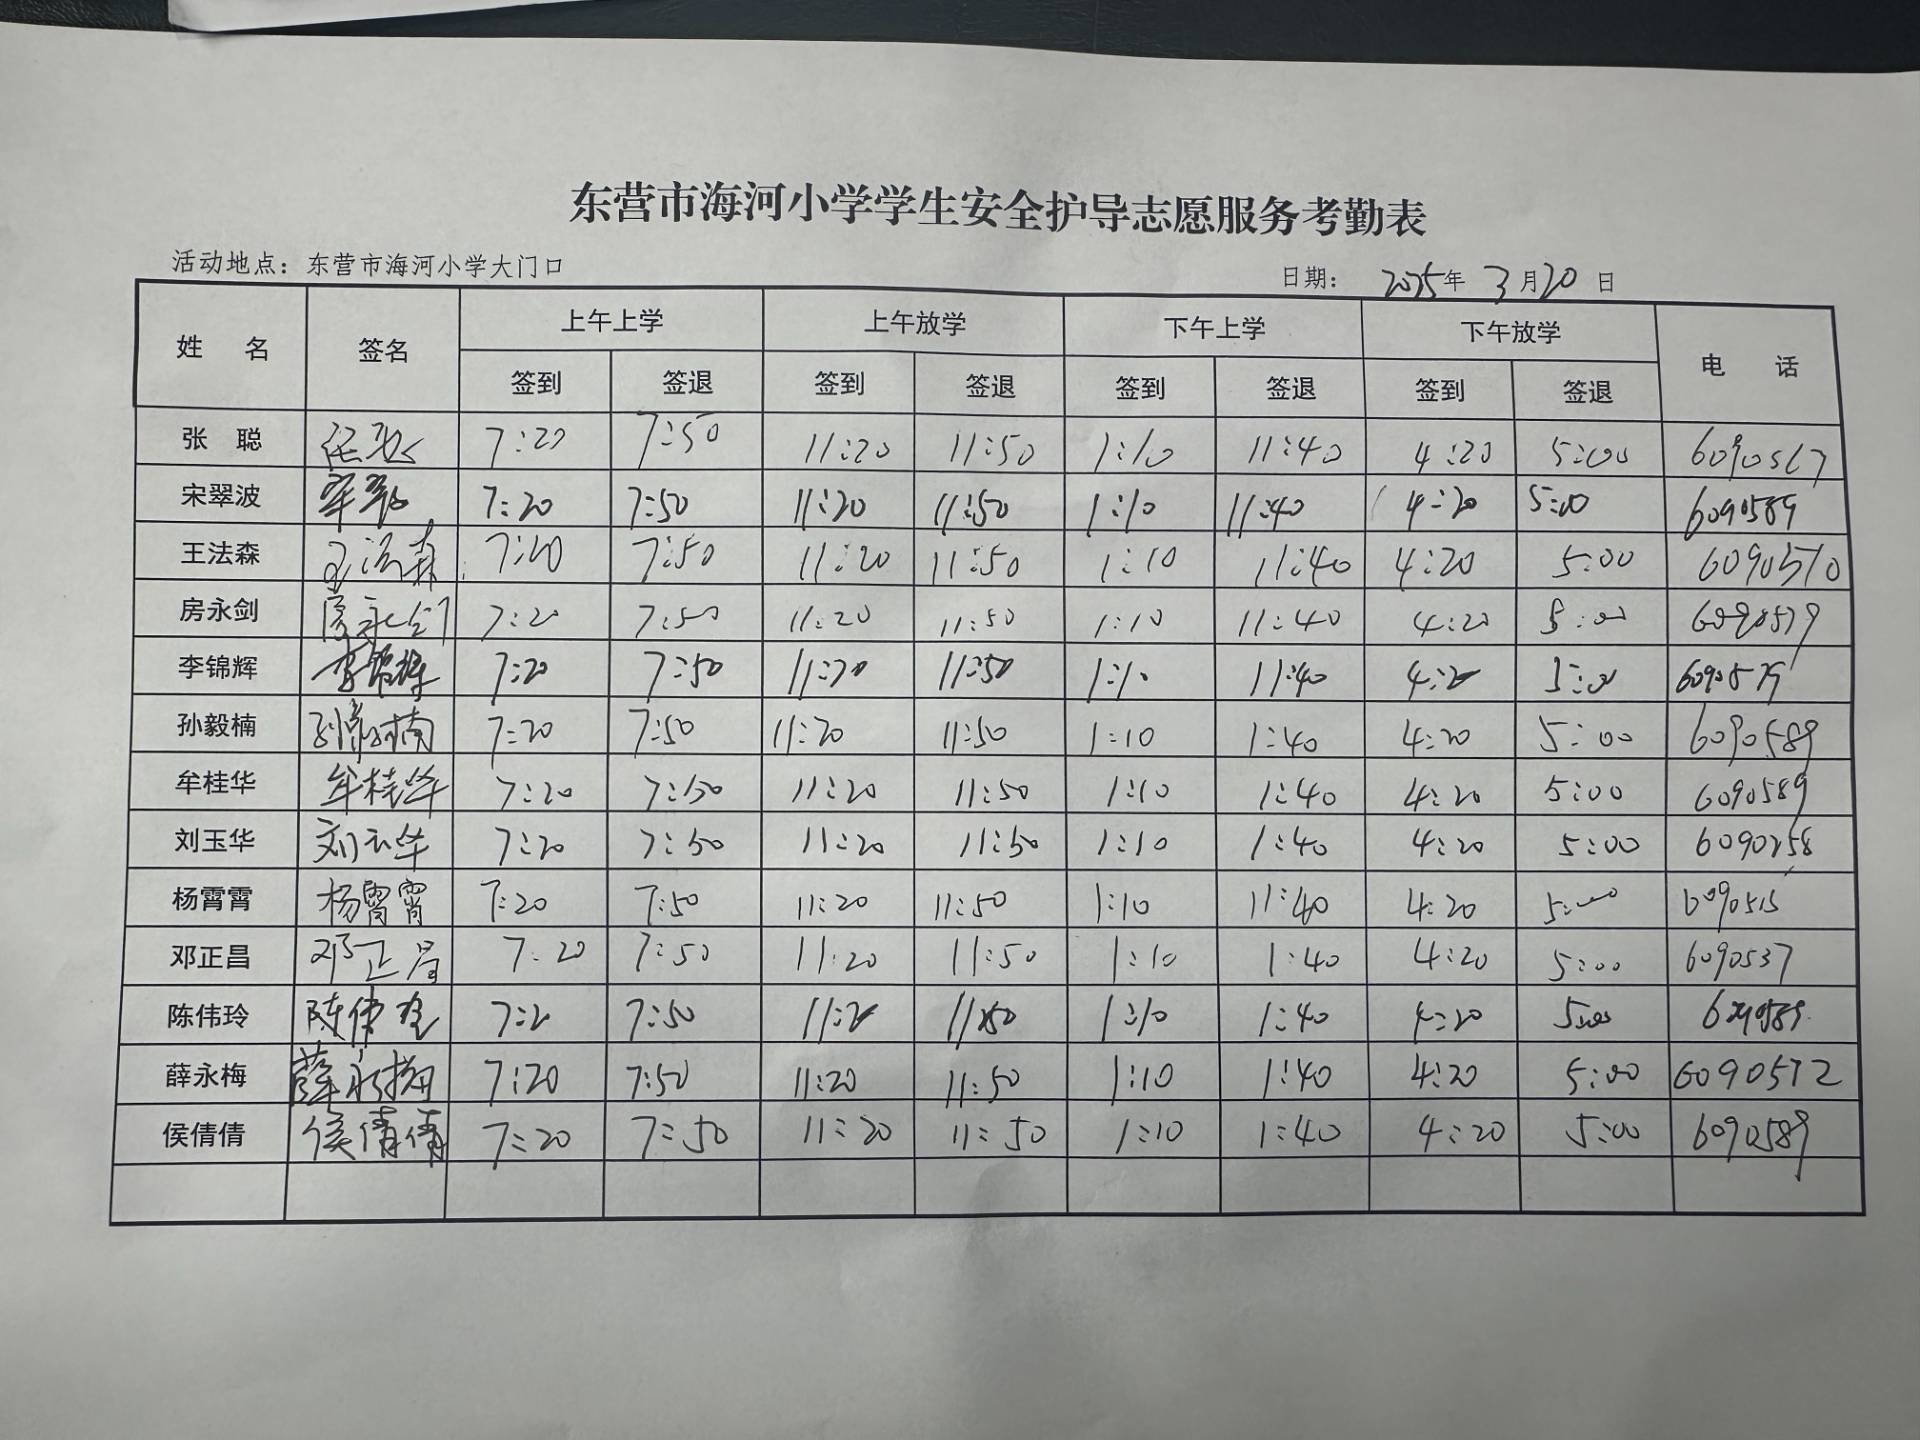 东营市海河小学学生安全护导志愿服务考勤表
活动地点：东营市海河小学大门口 日期： 2025年 3月20日
姓 名 签名 上午上学 上午放学 下午上学 下午放学 电 话
签到 签退 签到 签退 签到 签退 签到 签退
张 聪 7:20 7:50 11:20 11:50 1:10 11:40 4:20 5:00 6090567
宋翠波 7:20 7:50 11:20 11:50 1:10 11:40 4:20 5:00 6090589
王法森 王法森 7:20 7:50 11:20 11:50 1:10 11:40 4:20 5:00 6090570
房永剑 房永剑 7:20 7:50 11:20 11:50 1:10 11:40 4:20 5:00 6090579
李锦辉 李锦辉 7:20 7:50 11:20 11:50 1:10 11:40 4:20 5:00 6090579
孙毅楠 孙毅楠 7:20 7:50 11:20 11:50 1:10 1:40 4:20 5:00 6090589
牟桂华 牟桂华 7:20 7:50 11:20 11:50 1:10 1:40 4:20 5:00 6090589
刘玉华 刘玉华 7:20 7:50 11:20 11:50 1:10 1:40 4:20 5:00 6090258
杨霄霄 杨霄霄 7:20 7:50 11:20 11:50 1:10 11:40 4:20 5:00 6090515
邓正昌 邓正昌 7:20 7:50 11:20 11:50 1:10 1:40 4:20 5:00 6090537
陈伟玲 陈伟玲 7:20 7:50 11:20 11:50 1:10 1:40 4:20 5:00 6090589
薛永梅 薛永梅 7:20 7:50 11:20 11:50 1:10 1:40 4:20 5:00 6090572
侯倩倩 侯倩倩 7:20 7:50 11:20 11:50 1:10 1:40 4:20 5:00 6090589